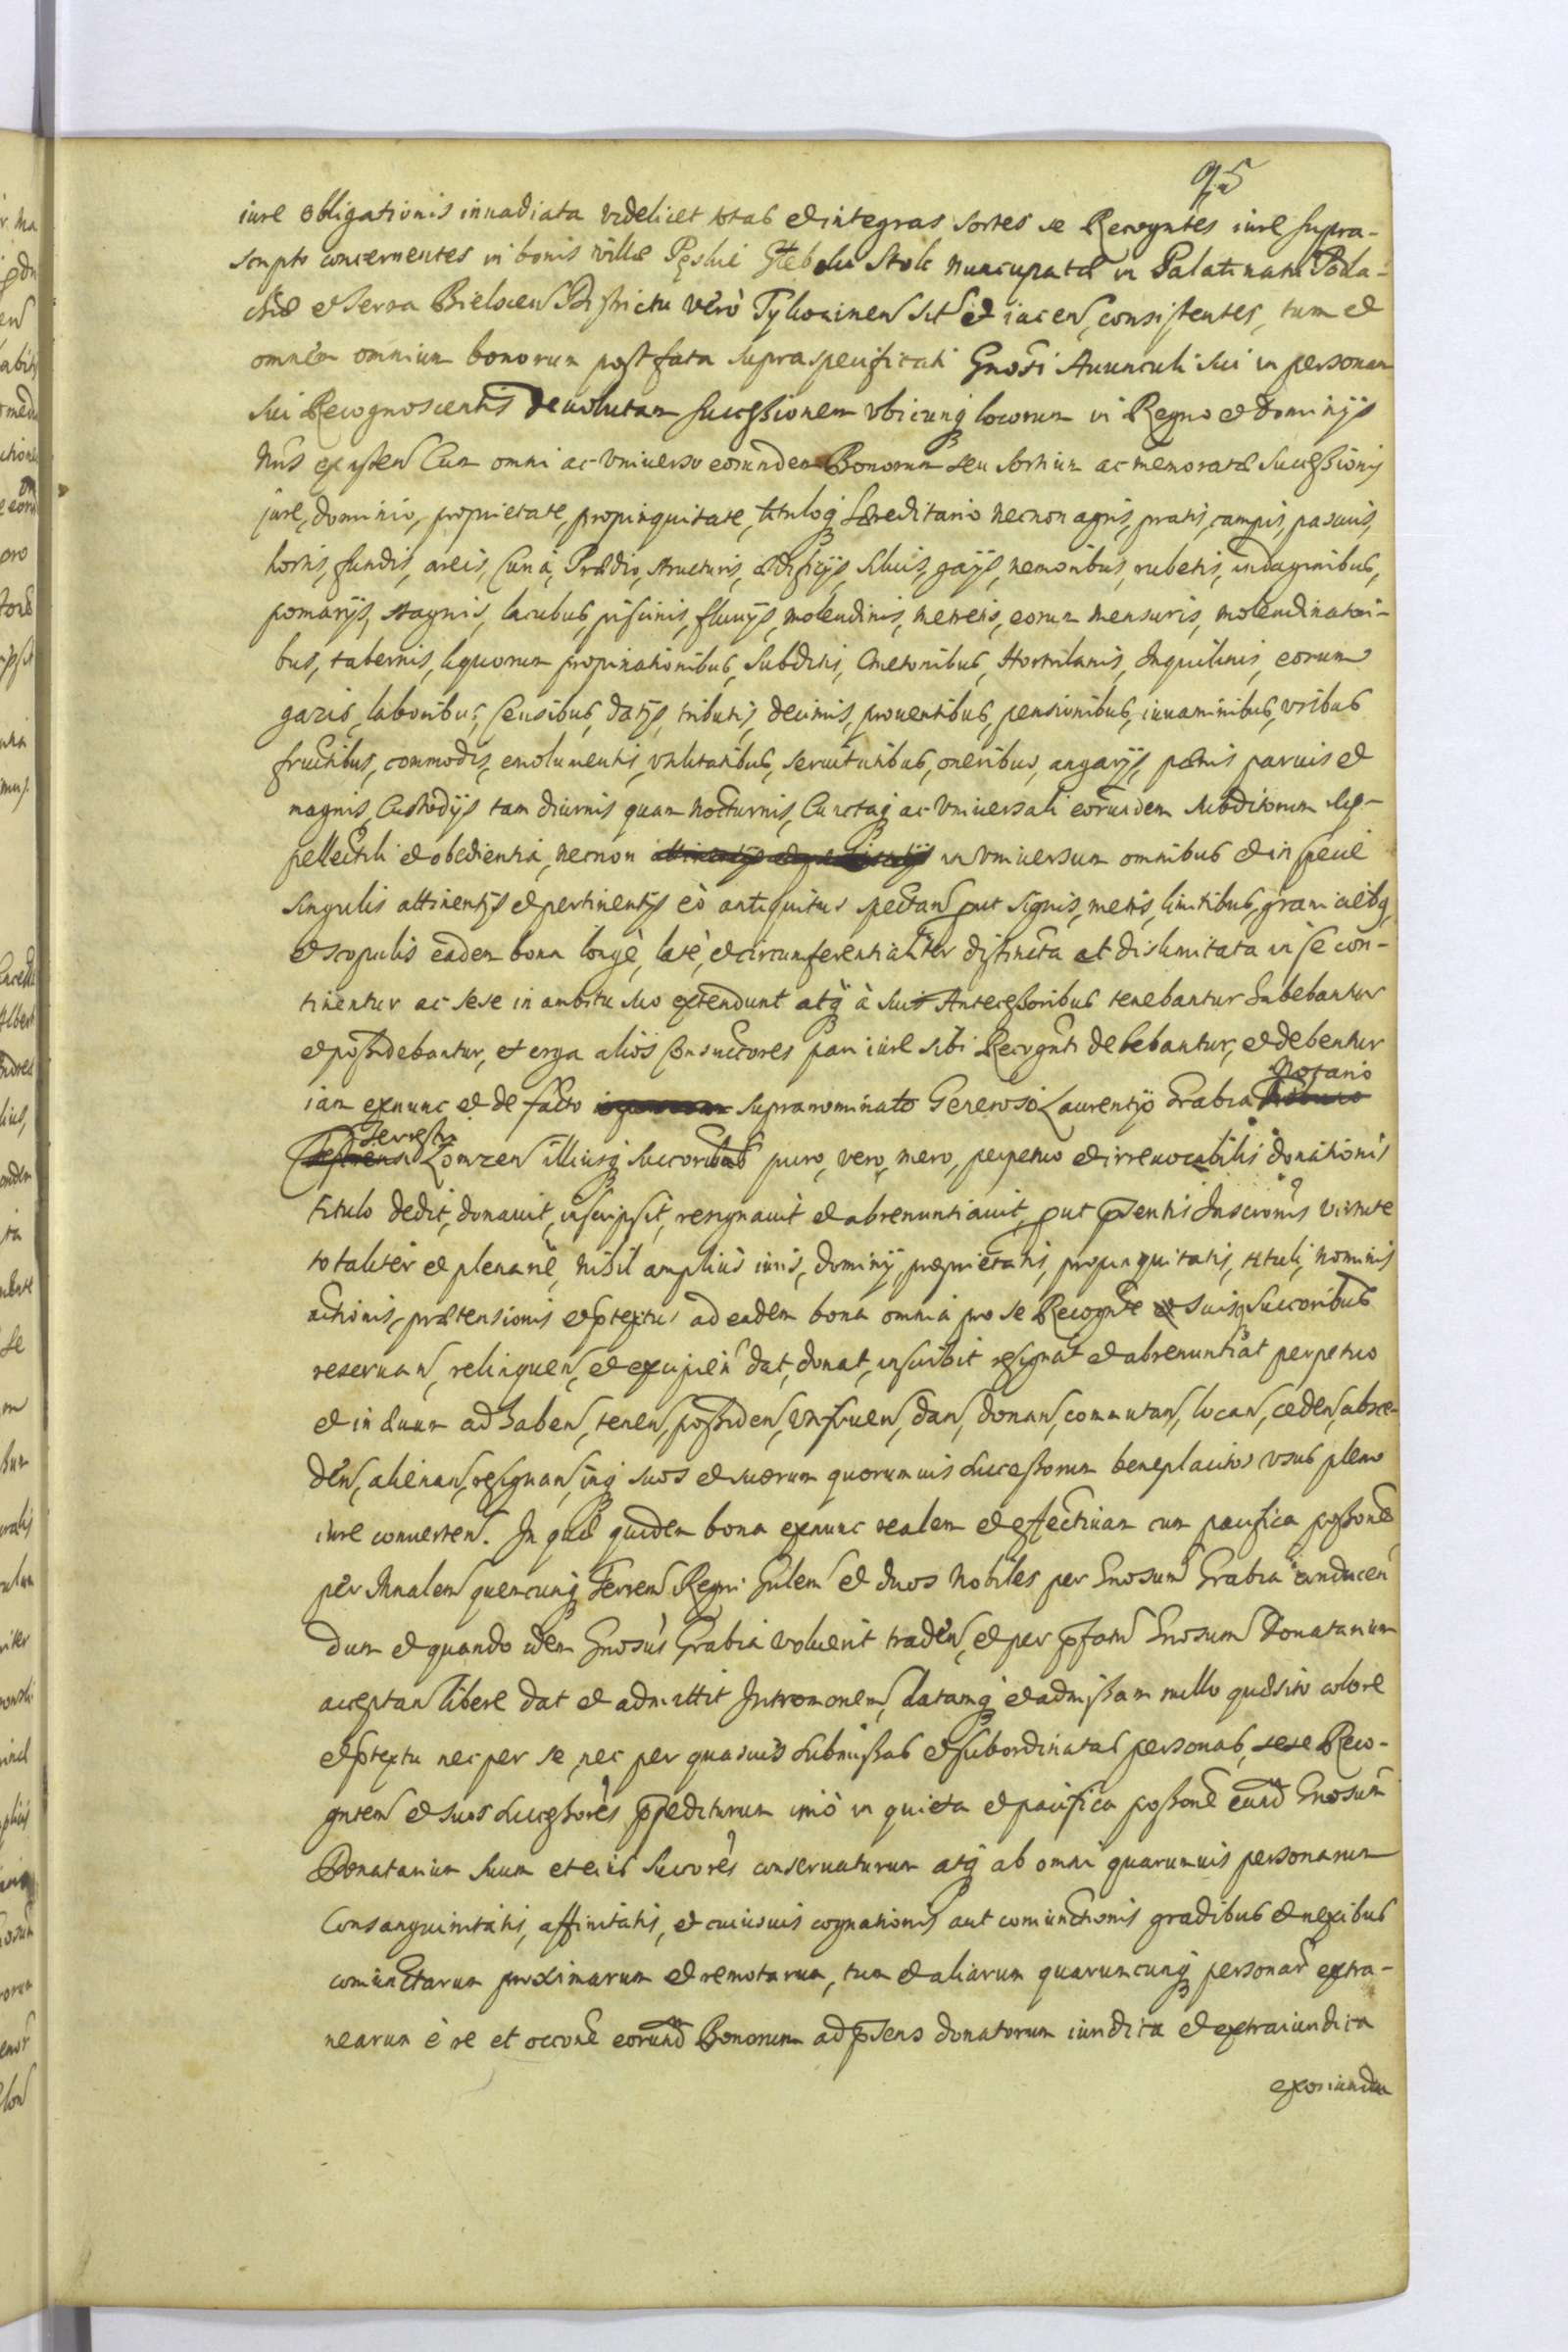 95
iure obligationis inuadiata videlicet totas et integras sortes se Recogntes iure supra-
scripto concernentes in bonis villæ Pęskie Głeboki Stok nuncupatæ in Palatinatu Podla-
chiæ et Terra Bielscen Districtu verò Tykocinen sit et iacen, consistentes, tum et
omnem omnium bonorum post fata supraspecificati Gnosi Auunculi sui in personam
sui Recognoscentis deuolutam successionem vbicunq locorum in Regno et Dominijs
existen Cum omni ac Vniuerso eorundem Bonorum seu sortium ac memoratæ successionis
jure, dominio, proprietate, propinquitate, tituloq hæreditario necnon agris, pratis, campis, pascuis,
hortis, fundis, areis, Curia, Prædio, structuris, ædificijs, siluis, gays, nemoribus, rubetis, indaginibus,
pomarijs, stagnis, lacubus, piscinis, fluuijs, molendinis, eorum mensuris, molendinatori-
bus, tabernis, liquorum propinationibus, Subditis, Cmetonibus, Hortulanis, Inquilinis, eorum
gazis, laboribus, censibus, datijs, tributis, decimis, prouentibus, pensionibus, iuuaminibus, vsibus
fructibus, commodis, emolumentis, vtilitatibus, seruitutibus, oneribus, angarijs, pænis paruis et
magnis, Custodijs tam diurnis quam nocturnis, Cunctaq ac Vniuersali eorundem subditorum sup-
pellectili et obedientia, necnon in vniuersum omnibus et in specie
singulis attinentijs et pertinentijs eò antiquitus spectan put signis, metis, limitibus, graniciebq,
et scopulis eadem bona longè, latè, et circumferentialiter distincta et dislimitata in se con-
tinentur ac sese in ambitu suo extendunt atq à suis Antecessoribus tenebantur habebantur
et possidebantur, et erga aliòs Consuccores pari iure sibi Recognti debebantur, et debentur
iam exnunc et de facto supranominato Generoso Laurentio Grabia Notario
Terrestri Lomzen illiusq succoribus puro, vero, mero, perpetuo et irreuocabilis donationis
titulo dedit, donauit, inscripsit, resignauit et abrenuntiauit, put pñtis Inscronis virtute
totaliter et plenariè, nihil ampliùs iuris, dominij, proprietatis, propinquitatis, tituli, nominis
actionis, prætensionis et ptextus ad eadem bona omnia pro se Recognte suisq succoribus
reseruan, relinquen, et excipien dat, donat, inscribit resignat et abrenuntiat perpetuo
et in æuum ad haben, tenen, possiden, vtifruen, dan, donan, commutan, locan, ceden, absce-
den, alienan, resignan, inq suos et suorum quorumuis successorum beneplacitos vsus pleno
iure conuerten. In quæ quidem bona exnunc realem et effectiuam cum pacifica possone
per Mnalem quemcunq Terren Regni Gnlem et duos Nobiles per Gnosum Grabia adducen
dum et quando idem Gnosus Grabia voluerit traden, et per pfatum Gnosum Donatarium
acceptan libere dat et admittit Intromonem, datamq et admissam nullo quæsito colore
et ptextu nec per se, nec per quasuis submissas et subordinatas personas, sese Reco-
gntem et suos successores ppediturum imò in quieta et pacifica possone eund Gnosum
Donatarium suum et eius succores conseruaturum atq ab omni quarumuis personarum
Consanguinitatis, affinitatis, et cuiusuis cognationis aut coniunctionis gradibus et nexibus
coniunctarum proximarum et remotarum, tum et aliarum quarumcunq personar extra-
nearum è re et occone eorund Bonorum ad pñsens donatorum iuridica et extraiuridica
exoriunda